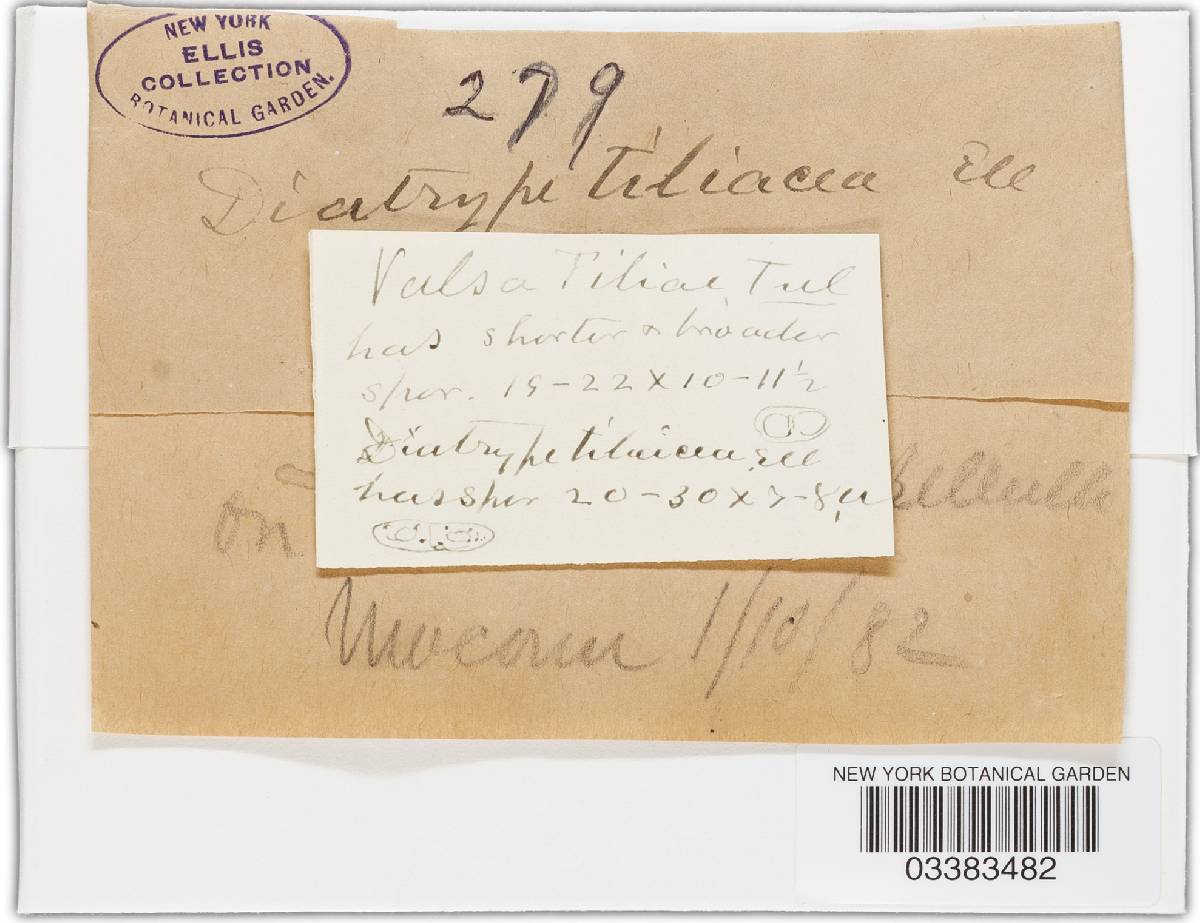 NEW YORK
ELLIS
COLLECTION
BOTANICAL GARDEN.
279
Diatrype tiliacea Ell
Valsa Tiliae Tul
has shorter & broader
spor. 19-22 x 10-11½
Diatrype tilaicea Ell
has spor 20-30 x 7-8 µ
on
1/10/82
NEW YORK BOTANICAL GARDEN
03383482